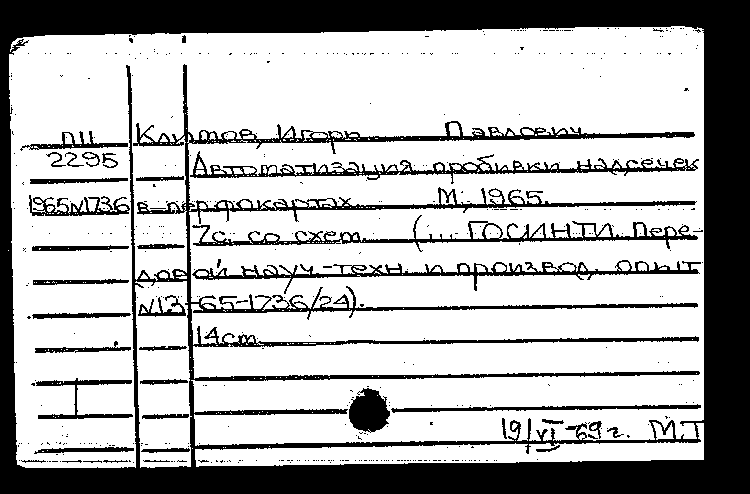 ПII Климов, Игорь Павлович
2295 Автоматизация пробивки надсечек
1965N1736 в перфокартах М., 1965.
7с. со схем. (... ГОСИНТИ. Пере-
довой науч.-техн. и производ. опыт
N13-65-1736/24).
14cm
19/VI-69г. М.Т